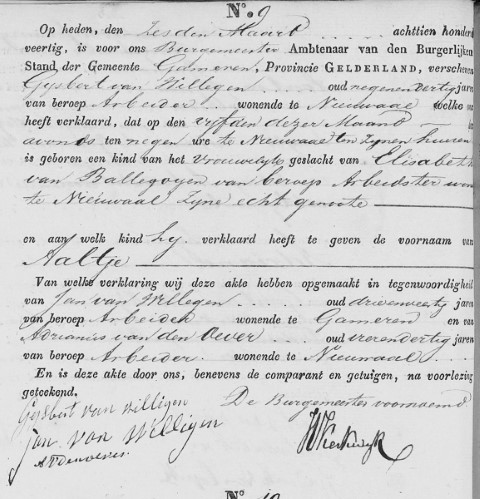 N.o 9
Op heden, den zesden Maart achttien honderd
veertig, is voor ons Burgemeester Ambtenaar van den Burgerlijken
Stand der Gemeente Gameren, Provincie GELDERLAND, verschenen
Gysbert van Willegen oud negenendertig jaren
van beroep Arbeider wonende te Nieuwaal welke
heeft verklaard, dat op den vyfden dezer Maand
avonds ten negen ure te Nieuwaal ten zynen huize
is geboren een kind van het vrouwelyk geslacht van Elisabeth
van Ballegoyen van beroep Arbeidster
te Nieuwaal zyne echt genoote
en aan welk kind hy verklaard heeft te geven de voornaam van
Aaltje
Van welke verklaring wij deze akte hebben opgemaakt in tegenwoordigheid
van Jan van Willegen oud drieenveertig jaren
van beroep Arbeider wonende te Gameren en van
Adrianus van den Oever oud vierendertig jaren
van beroep Arbeider wonende te Nieuwaal
En is deze akte door ons, benevens de comparant en getuigen, na voorlezing
geteekend.
De Burgemeester voornoemd
Gysbert van willigen
jan van Willigen
A V Denoever